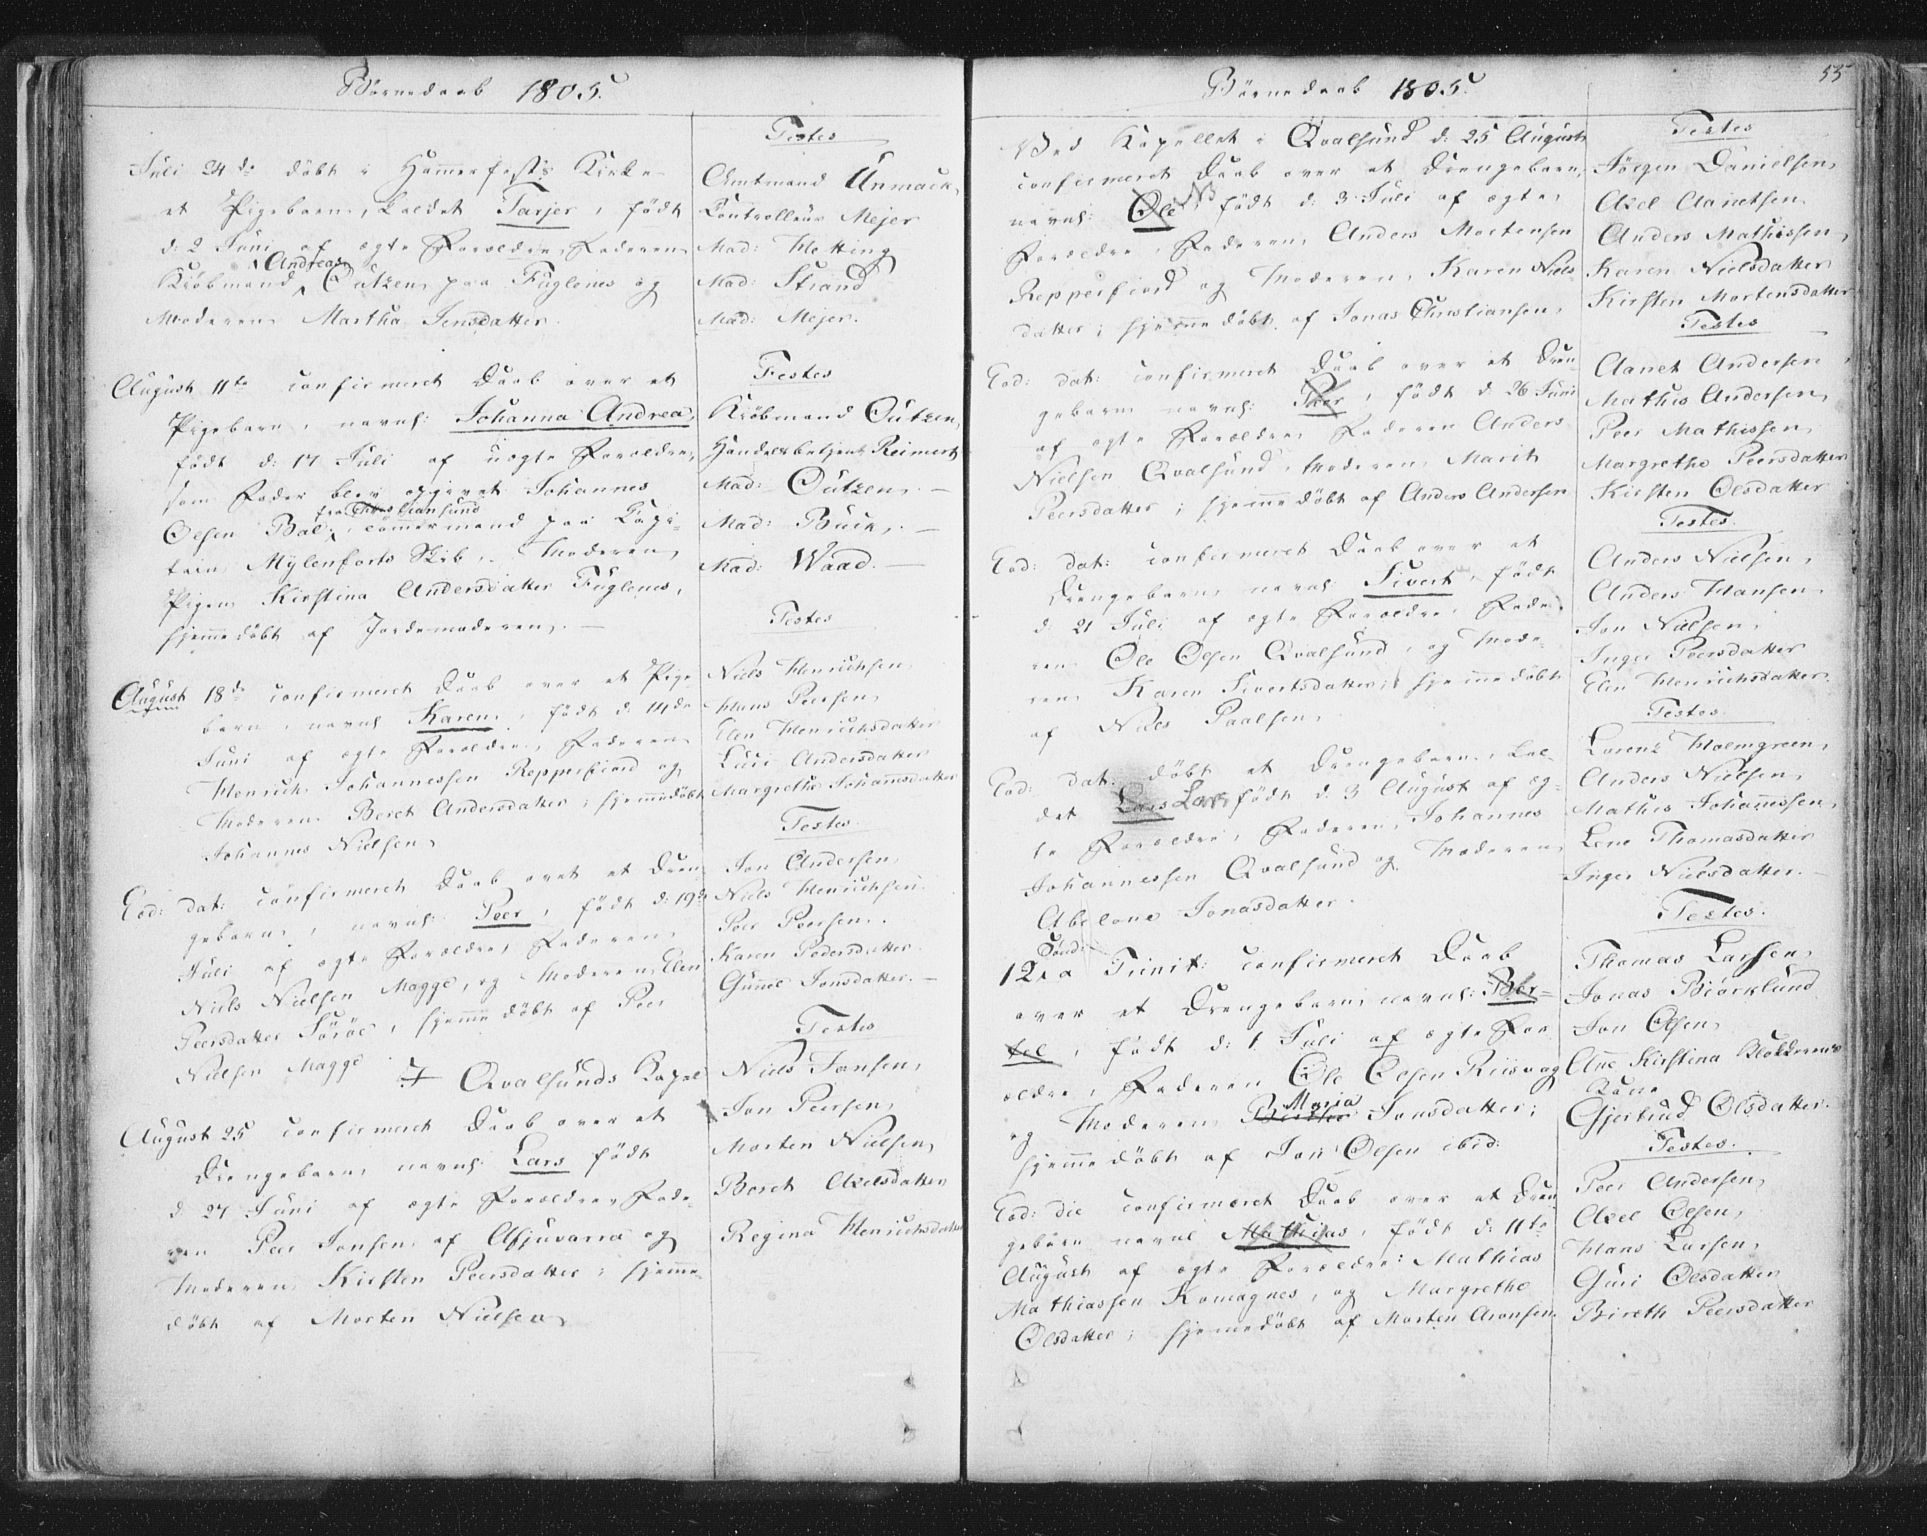 Börnedaab 1805.
Testes
Juli 24de döbt i Hamerfests Kirke
et Pigebarn, kaldet Tarjer, födt
d: 2 Juni af ægte Forældre, Faderen
Andreas
Kiöbmand Outzen paa Fuglenes og
Moderen Martha Jensdatter.
Amtmand Unmack,
Kontrolleur Mejer
Mad: Hetting
Mad: Strand
Mad: Mejer.
August 11te confirmeret Daab over et
Pigebarn, navnl: Johanna Andrea,
födt d: 17 Juli af uægte Forældre,
som Fader blev opgivet Johannes
fra Christiansund
Olsen Bal, Tömermand paa Kapi-
tain Mylenforts Skib, Moderen,
Pigen Kirstina Andersdatter Fuglenes,
hjemedöbt af Jordemoderen.
Testes
Kiöbmand Outzen,
Handelsbetjent Reimert
Mad: Outzen,
Mad: Buck,
Mad: Waad.
August 18de confirmeret Daab over et Pige
barn, navnl Karen, födt d: 14de
Juni af ægte Forældre, Faderen
Henrich Johannessen Repperfiord og
Moderen Beret Andersdatter; hjemedöbt
Johannes Nielsen,
Testes
Niels Henrichsen,
Hans Peersen,
Elen Henrichsdatter
Luci Andersdatter
Margrethe Johannsdatter
Eod: dat: confirmeret Daab over et Dren
gebarn, navnl: Peer, födt d: 19de
Juli af ægte Forældre, Faderen,
Niels Nielsen Magge, og Moderen, Elen
Peersdatter Söröe, hjemedöbt af Peer
Nielsen Magge
Testes
Jon Andersen,
Niels Henrichsen.
Peer Peersen.
Karen Pedersdatter.
Gunnel Jonsdatter.
I Qvalsunds Kapel
August 25 confirmeret Daab over et
Drengebarn, navnl: Lars födt
d 27 Juni af ægte Forældre, Fade-
ren Peer Jonsen af Afjuvarra og
Moderen Kirsten Peersdatter; hjemme-
döbt af Morten Nielsen,
Testes
Niels Jonsen,
Jon Peersen,
Morten Nielsen,
Beret Axelsdatter
Regina Henrichsdatter
Börnedaab 1805.
55
Ved Kapellet i Qvalsund d: 25 August
confirmeret Daab over et Drengebarn,
navnl: Ole, födt d: 3 Juli af ægte
Forældre, Faderen, Anders Mortensen
Repperfiord og Moderen, Karen Niels-
datter; hjemedöbt af Jonas Christiansen,
Testes
Jörgen Danielsen,
Axel Aanetsen
Anders Mathissen,
Karen Nielsdatter
Kirsten Mortensdatter
Eod: dat: confirmeret Daab over et Dren
gebarn navnl: Peer, födt d 26 Juni
af ægte Forældre, Faderen Anders
Nielsen Qvalsund, Moderen, Marit
Peersdatter; hjemmedöbt af Anders Andersen
Testes
Aanet Andersen
Mathis Andersen,
Peer Mathissen,
Margrethe Peersdatter
Kirsten Olsdatter
Eod: dat: confirmeret Daab over et
Drengebarn navnl: Sivert, födt
d: 21 Juli af ægte Forældre, Fade-
ren Ole Olsen Qvalsund, og Mode-
ren, Karen Sivertsdatter; hjemmedöbt
af Niels Paalsen,
Testes.
Anders Nielsen,
Anders Hansen,
Jon Nielsen,
Inger Peersdatter
Elen Henrichsdatter.
Eod: dat: döbt et Drengebarn, kal-
det Lars Lars födt d. 3 August af æg-
te Forældre, Faderen, Johannes
Johannessen Qvalsund og Moderen,
Abelone Jonasdatter.
Testes.
Lorenz Holmgreen,
Anders Nielsen,
Mathis Johannessen,
Lene Thomasdatter
Inger Nielsdatter.
Sönd:
12ta Trinit: confirmeret Daab
over et Drengebarn, navnl: Ber-
tel, födt d: 1 Juli af ægte For
ældre, Faderen Ole Olsen Riisvog
Maria
og Moderen, Jonsdatter;
hjemmedöbt af Jon Olsen ibid:
Testes.
Thomas Larsen,
Jonas Biörklund
Jon Olsen,
Ane Kirstina Klokkerens
Kone
Gjertrud Olsdatter.
Eod: die confirmeret Daab over et Dren
gebarn navnl Mathias, födt d: 11te
August af ægte Forældre: Mathias
Mathiassen Komagnes, og Margrethe
Olsdatter; hjemedöbt af Morten Aronsen
Testes.
Peer Andersen,
Axel Olsen,
Hans Larsen,
Guri Olsdatter
Bireth Peersdatter